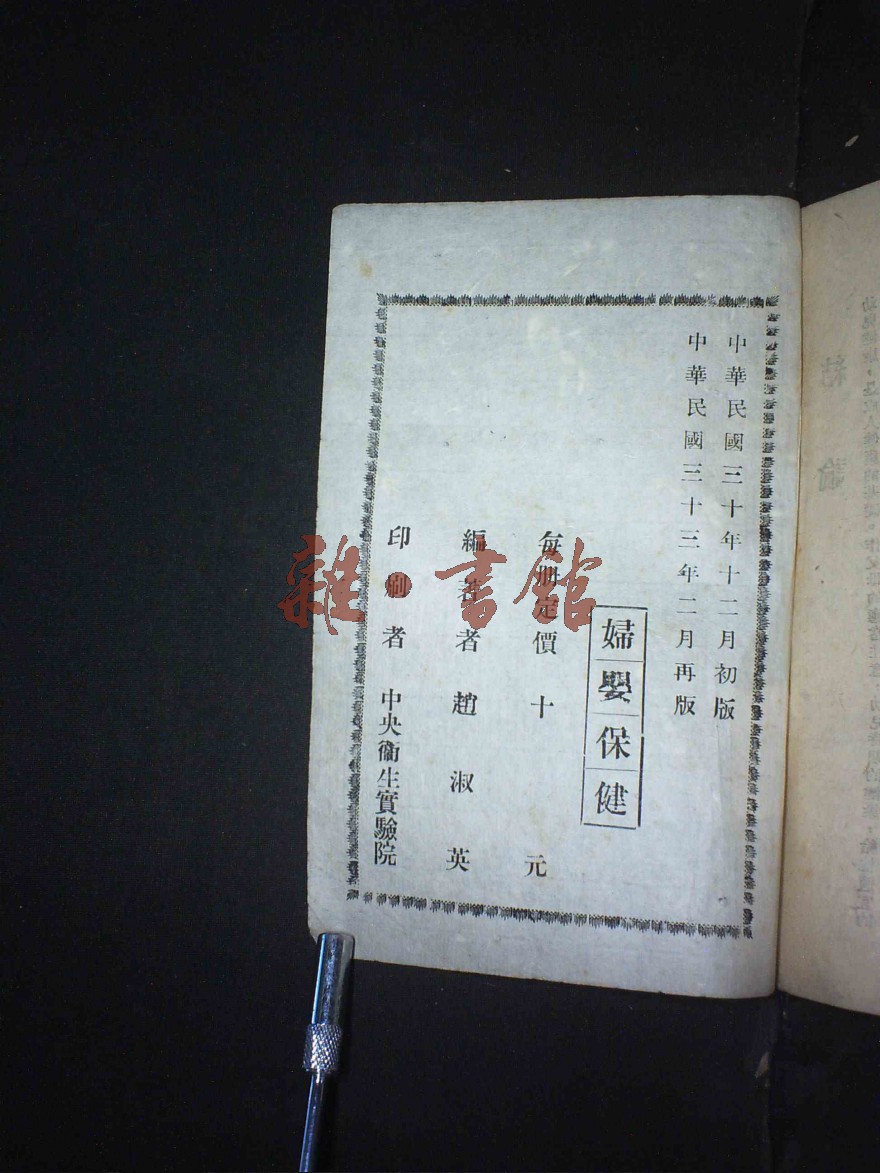 中華民國三十年十二月初版
中華民國三十三年二月再版
婦嬰保健
每册定價十元
編著者趙淑英
印刷者中央衞生實驗院
雜·書館
結論